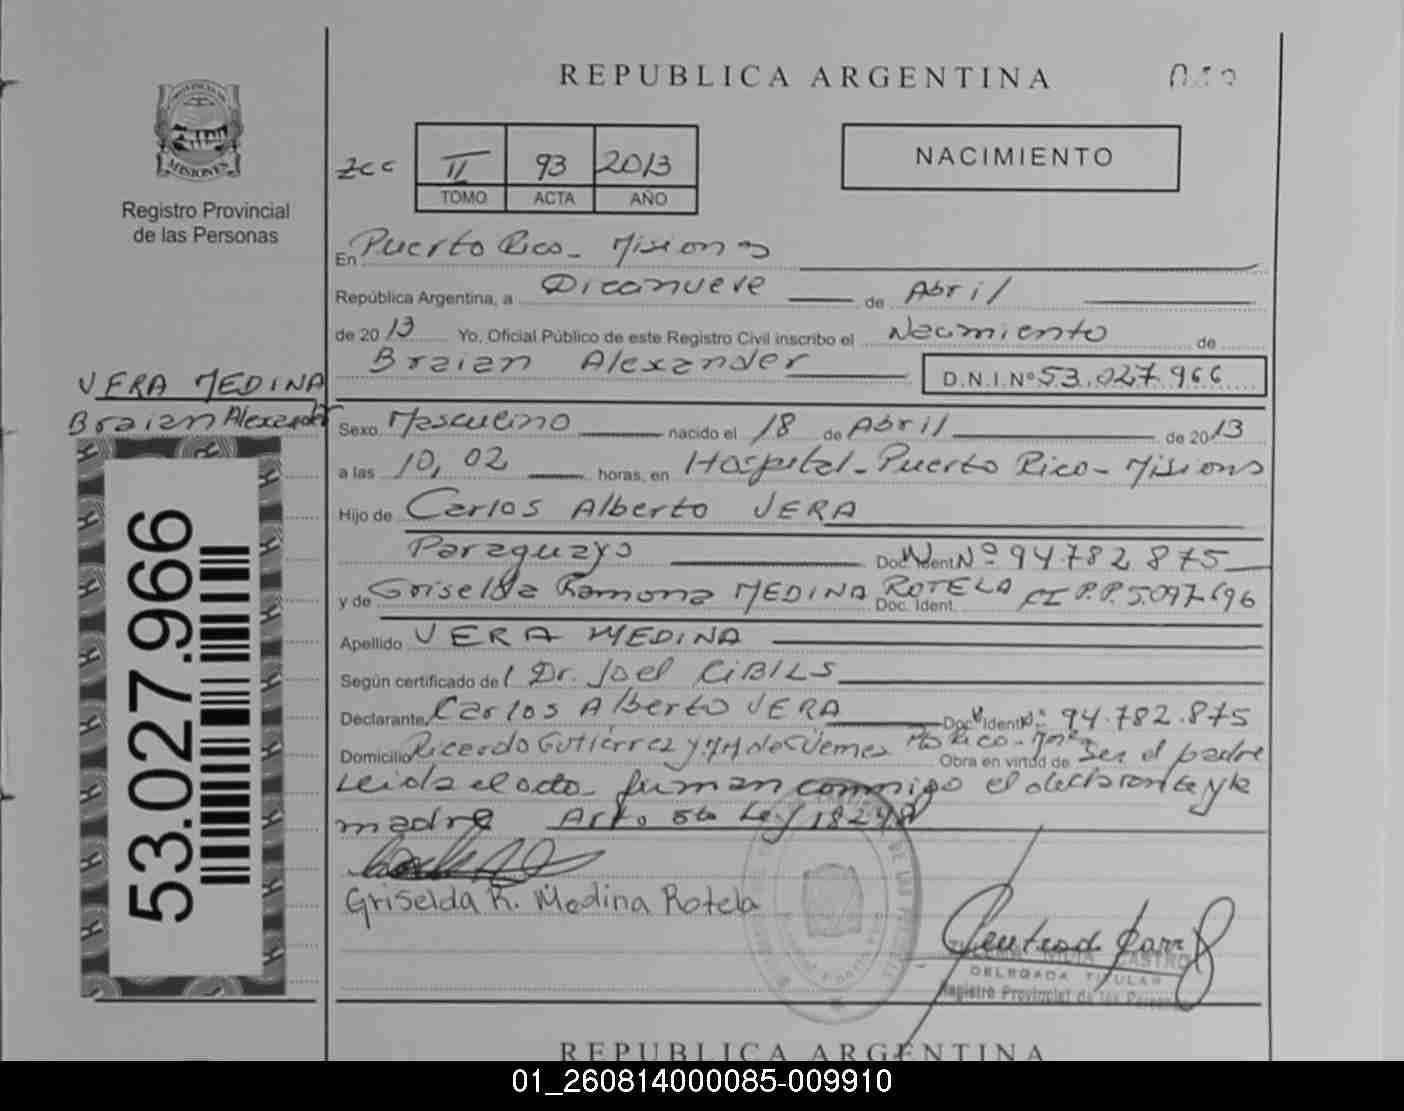 REPUBLICA ARGENTINA
PROVINCIA DE
MISIONES
Registro Provincial
de las Personas
NACIMIENTO
II 93 2013
TOMO ACTA AÑO
En Puerto Rico - Misiones
República Argentina, a Diecinueve de Abril
de 2013 Yo, Oficial Público de este Registro Civil inscribo el Nacimiento de
Braian Alexander D.N.I.Nº 53.027.966
VERA MEDINA
Braian Alexander
53.027.966
Sexo Masculino nacido el 18 de Abril de 2013
a las 10,02 horas, en Hospital - Puerto Rico - Misiones
Hijo de Carlos Alberto VERA
Paraguayo Doc. Ident. Nº 94.782.875
y de Griselda Ramona MEDINA ROTELA Doc. Ident. CI P.P. 5.097.696
Apellido VERA MEDINA
Según certificado del Dr. Joel CIBILS
Declarante Carlos Alberto VERA Doc. Ident. Nº 94.782.875
Domicilio Ricardo Gutiérrez y M de Güemes Pto Rico - Mnes Obra en virtud de Ser el padre
Leida el acta firman conmigo el declarante y la
madre Art. 5to Ley 18248
Griselda R. Medina Rotela
CASTRO
DELEGADA TITULAR
Registro Provincial de las Personas
REPUBLICA ARGENTINA
01_260814000085-009910